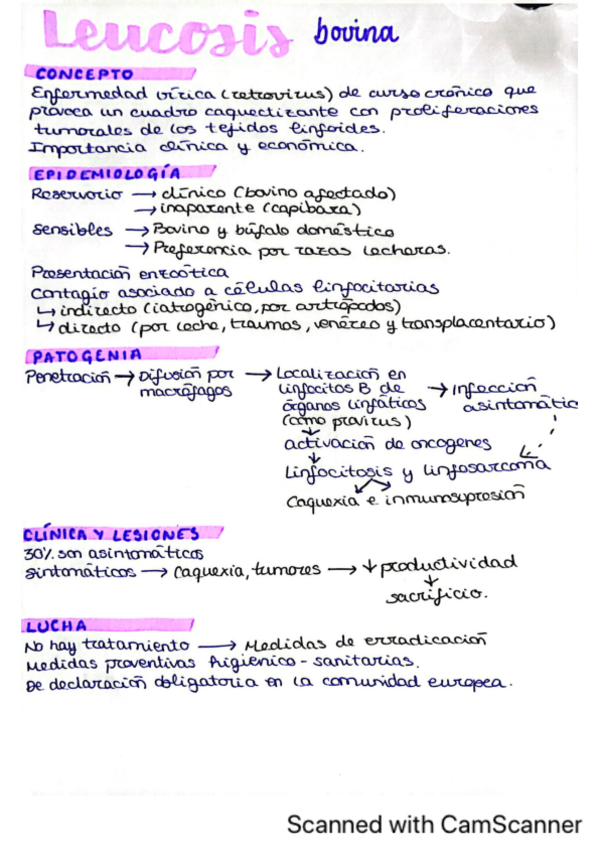 Leucosis bovina
CONCEPTO
Enfermedad vírica (retrovirus) de curso crónico que
provoca un cuadro caquectizante con proliferaciones
tumorales de los tejidos linfoides.
Importancia clínica y económica.
EPIDEMIOLOGÍA
Reservorio → clínico (bovino afectado)
→ inaparente (capibara)
Sensibles → Bovino y búfalo doméstico
→ Preferencia por razas lecheras.
Presentación enzoótica
Contagio asociado a células linfocitarias
↳ indirecto (iatrogénico, por artrópodos)
↳ directo (por leche, traumas, venéreo y transplacentario)
PATOGENIA
Penetración → Difusión por macrófagos → Localización en linfocitos B de órganos linfáticos (como provirus) → Infección asintomátic
↓
activación de oncogenes
↓
Linfocitosis y linfosarcoma
Caquexia e inmunosupresión
CLÍNICA Y LESIONES
30% son asintomáticos
Sintomáticos → Caquexia, tumores → ↓ productividad
↓
sacrificio.
LUCHA
No hay tratamiento → Medidas de erradicación
Medidas preventivas higiénico-sanitarias.
De declaración obligatoria en la comunidad europea.
Scanned with CamScanner